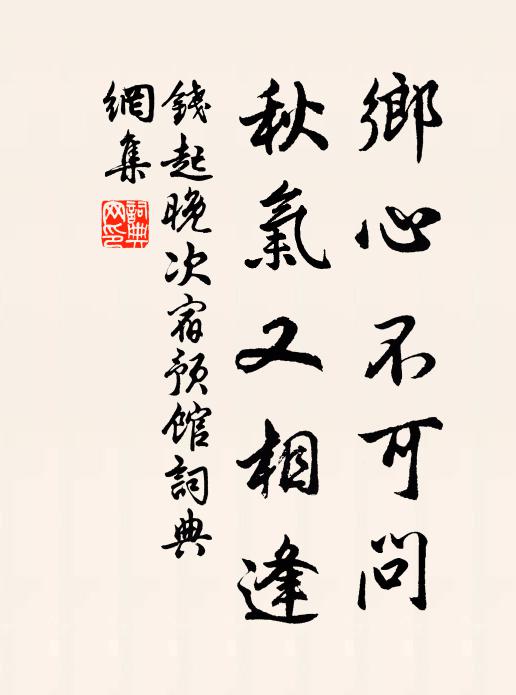 鄉心不可問
秋氣又相逢
錢起晚次宿預館詞典
網集
詞典
網印